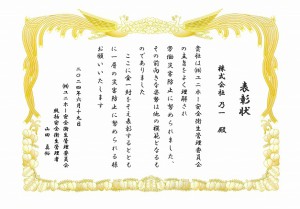 表彰状
株式会社 乃一 殿
貴社は㈱ユニホー安全衛生管理委員会
の主旨をよく理解され
労働災害防止に努められました。
その前向きな姿勢は他の模範となるも
のであります
ここに金一封をそえ表彰するととも
に一層の災害防止に努められる様
お願いいたします
二〇二四年六月十九日
㈱ユニホー安全衛生管理委員会
統括安全衛生管理者
山田 直裕